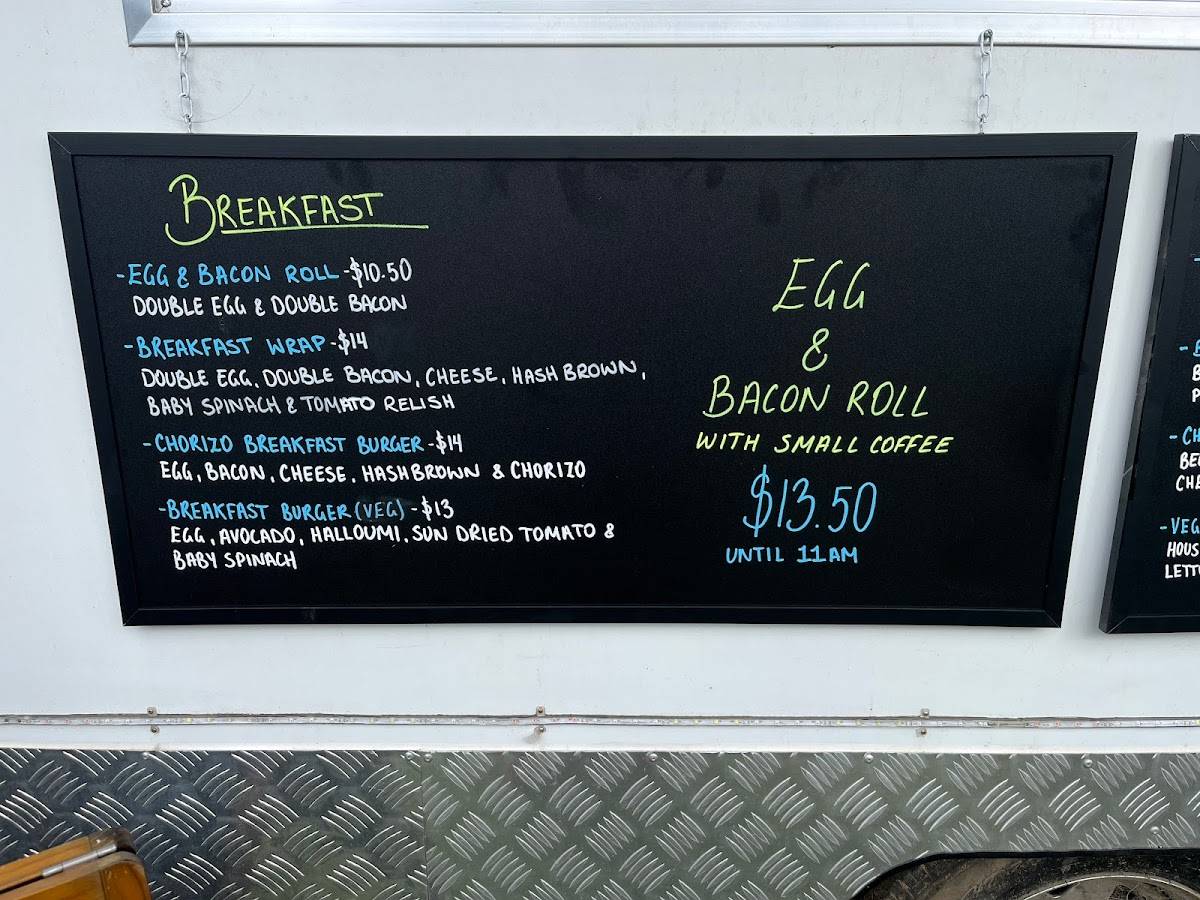 BREAKFAST
-EGG & BACON ROLL-$10.50
DOUBLE EGG & DOUBLE BACON
-BREAKFAST WRAP-$14
DOUBLE EGG, DOUBLE BACON, CHEESE, HASH BROWN,
BABY SPINACH & TOMATO RELISH
-CHORIZO BREAKFAST BURGER-$14
EGG, BACON, CHEESE, HASHBROWN & CHORIZO
-BREAKFAST BURGER (VEG)-$13
EGG, AVOCADO, HALLOUMI, SUN DRIED TOMATO &
BABY SPINACH
EGG
&
BACON ROLL
WITH SMALL COFFEE
$13.50
UNTIL 11AM